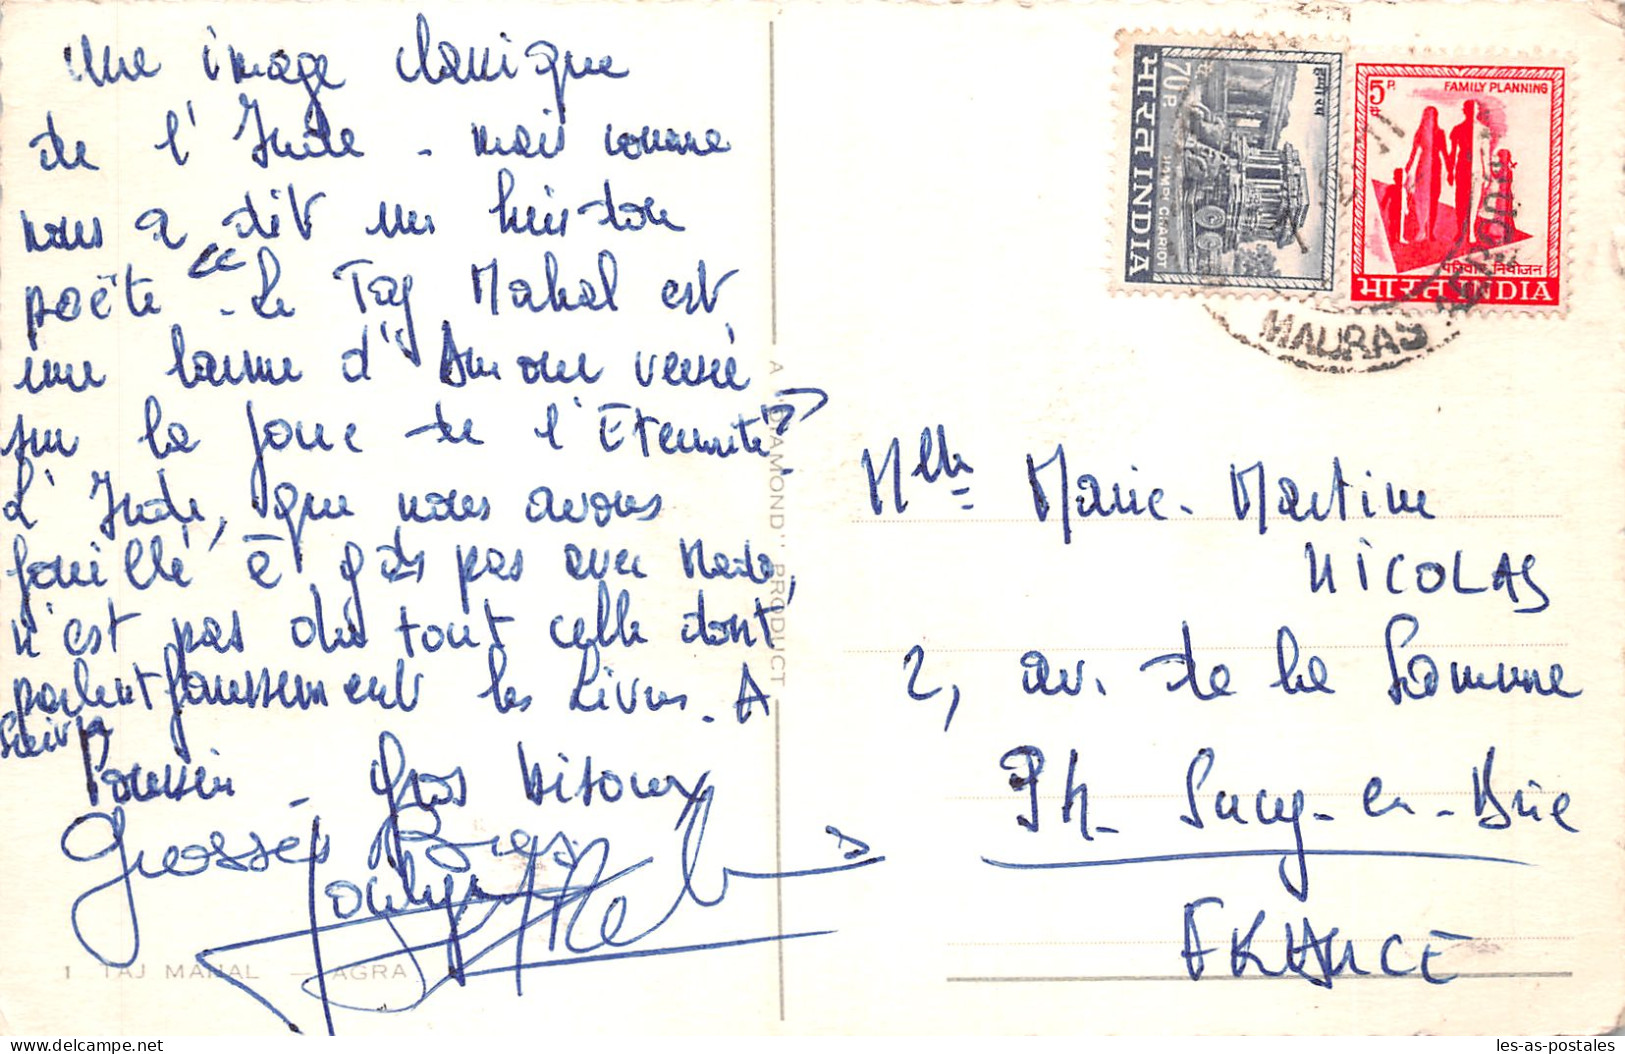 Une image classique
de l'Inde - mais comme
nous a dit un
poëte "Le Taj Mahal est
une larme d'Amour versée
sur la joue de l'Eternité"
L'Inde, que nous avons
fouillé à pas avec
n'est pas du tout celle dont
parlent faussement les Livres. A
Poussin - Gros Bisoux
Grosses Bises
1 TAJ MAHAL — AGRA
A "DIAMOND" PRODUCT
भारत INDIA
70 P.
HAMPI CHARIOT
5 P.
FAMILY PLANNING
परिवार नियोजन
भारत INDIA
MADRAS
Mlle Marie-Martine
NICOLAS
2, av. de la Somme
Sucy-en-Brie
FRANCE
les-as-postales
delcampe.net